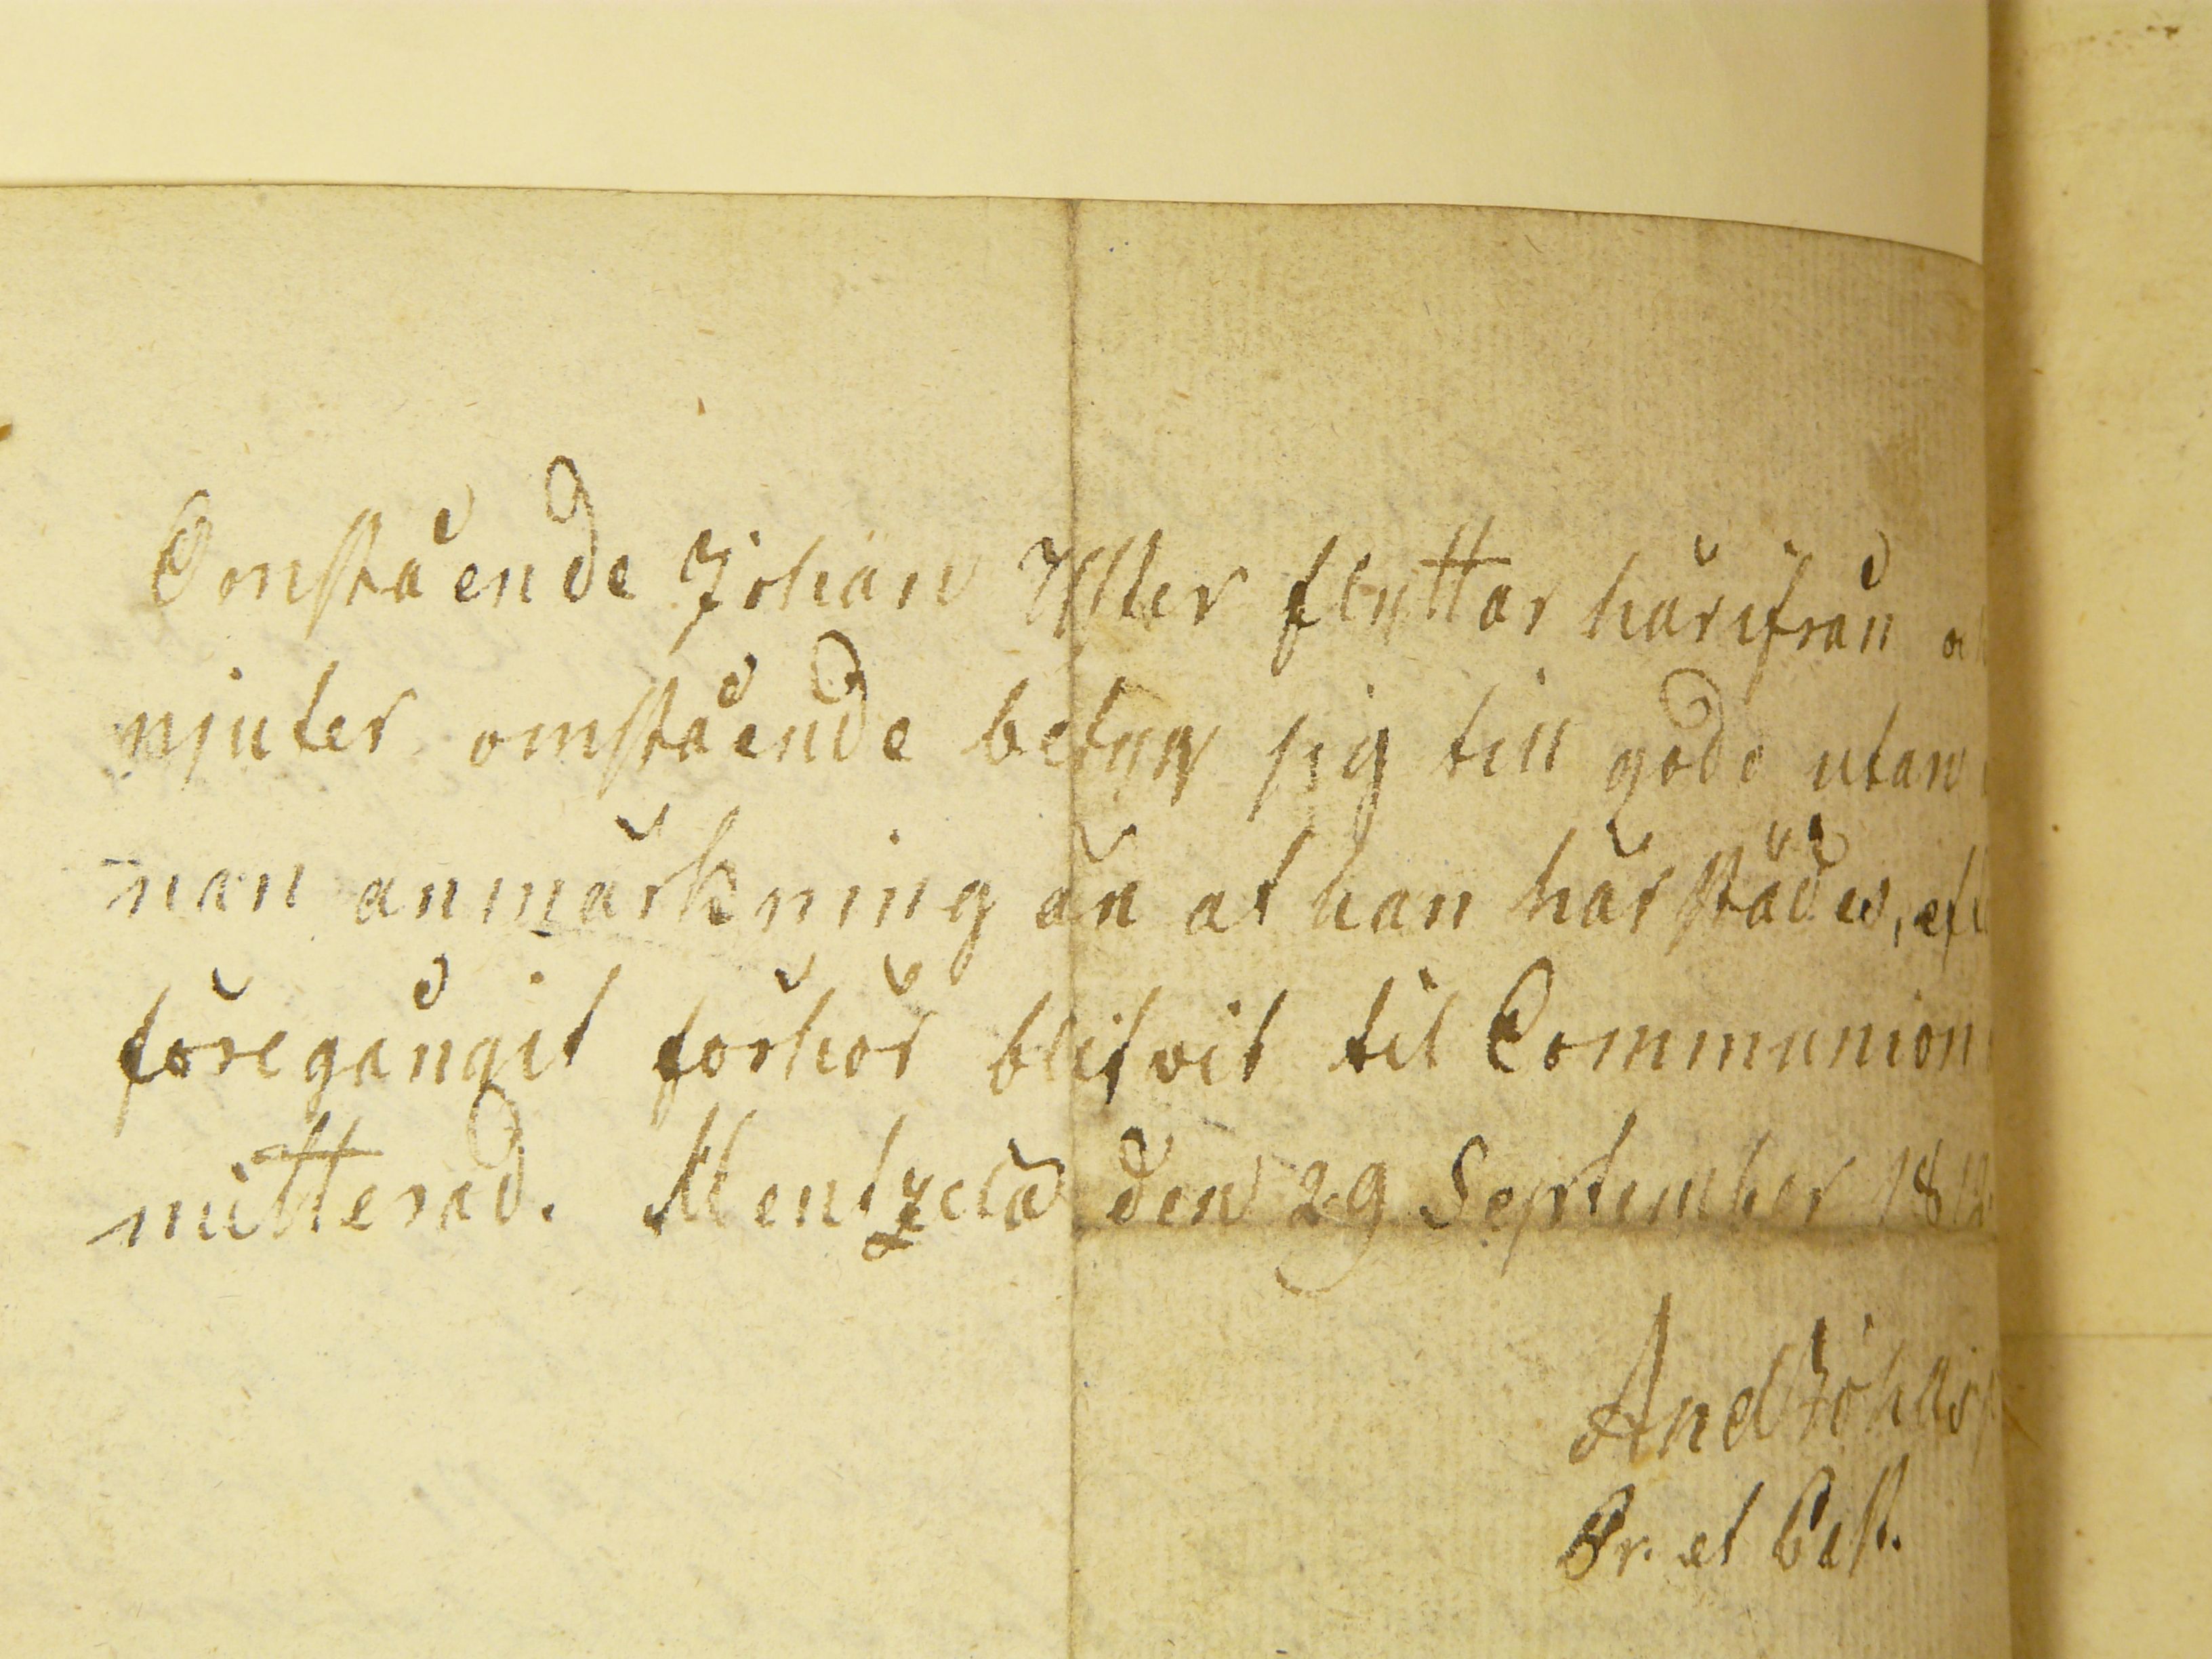 Omstående Johan Yster flyttar härifrån
njuter omstående betyg sig till godo utan
nan anmärkning än at han härstädes, eft
föregångit förhör blifvit til Communion
mitterad. Mentzelä den 29 September 1812
And Johan
Pr. et Past.